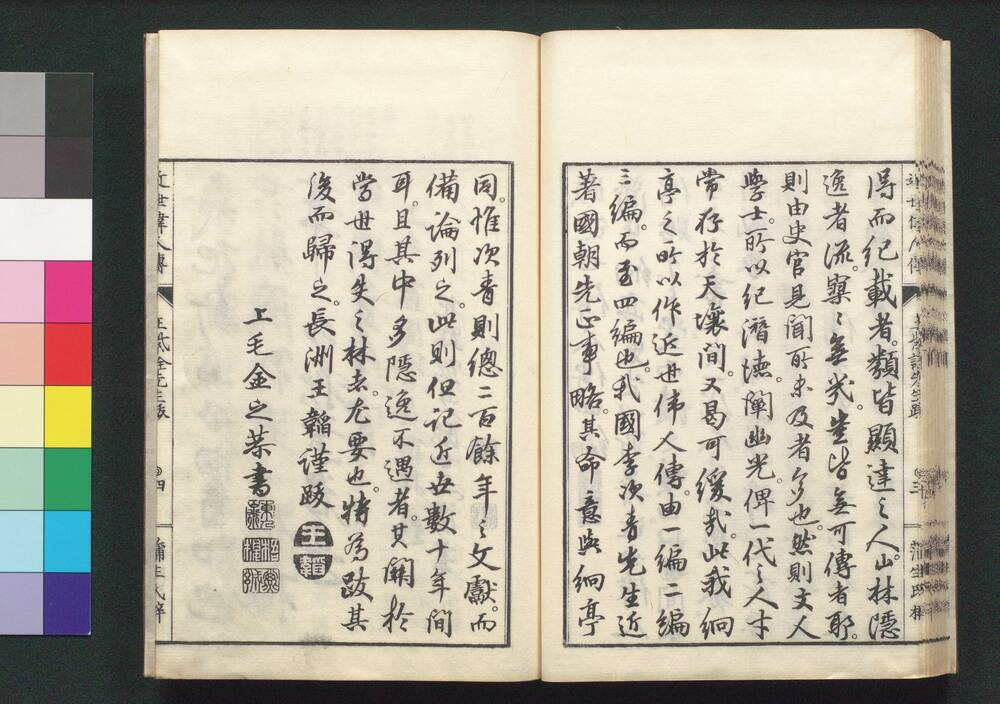 得而紀載者。類皆顯達之人。山林隱
逸者流。寥々無幾。豈皆無可傳者耶。
則由史官見聞所未及者多也。然則文人
學士。所以紀潛德。闡幽光。俾一代之人才
常存於天壤間。又曷可緩哉。此我絅
亭之所以作近世偉人傳。由一編二編
三編。而至四編也。我國李次青先生近
著國朝先正事略。其命意與絅亭
同。惟次青則總二百餘年之文獻。而
備論列之。此則但記近世數十年間
耳。且其中多隱逸不遇者。其關於
當世得失之林者。尤要也。特為跋其
後而歸之。長洲王韜謹跋
王韜
上毛金之恭書
近世偉人傳
三
蒲生氏梓
近世偉人傳
四
蒲生氏梓